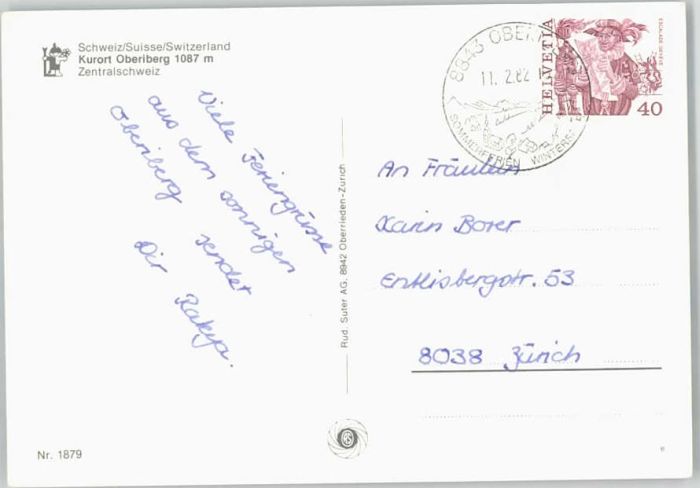 Schweiz/Suisse/Switzerland
Kurort Oberiberg 1087 m
Zentralschweiz
Viele Feriengrüsse
aus dem sonnigen
Oberiberg sendet
Dir Rakya.
Nr. 1879
Rud. Suter AG, 8942 Oberrieden-Zürich
8843 OBERI
11. 2.82
SOMMERFERIEN WINTERSP
HELVETIA
40
An Fräulein
Karin Borer
Entlisbergstr. 53
8038 Zürich